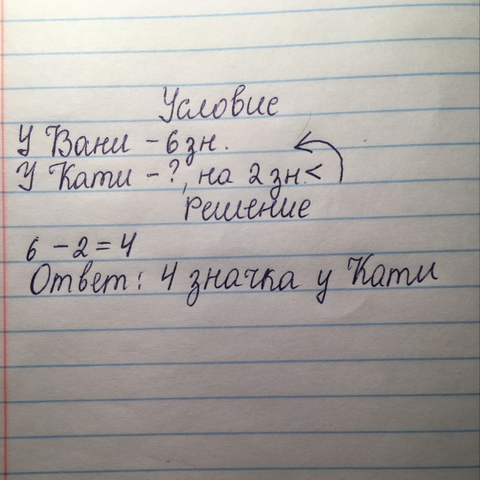 Условие
У Вани - 6 зн.
У Кати - ?, на 2 зн. <
решение
6 - 2 = 4
Ответ: 4 значка у Кати